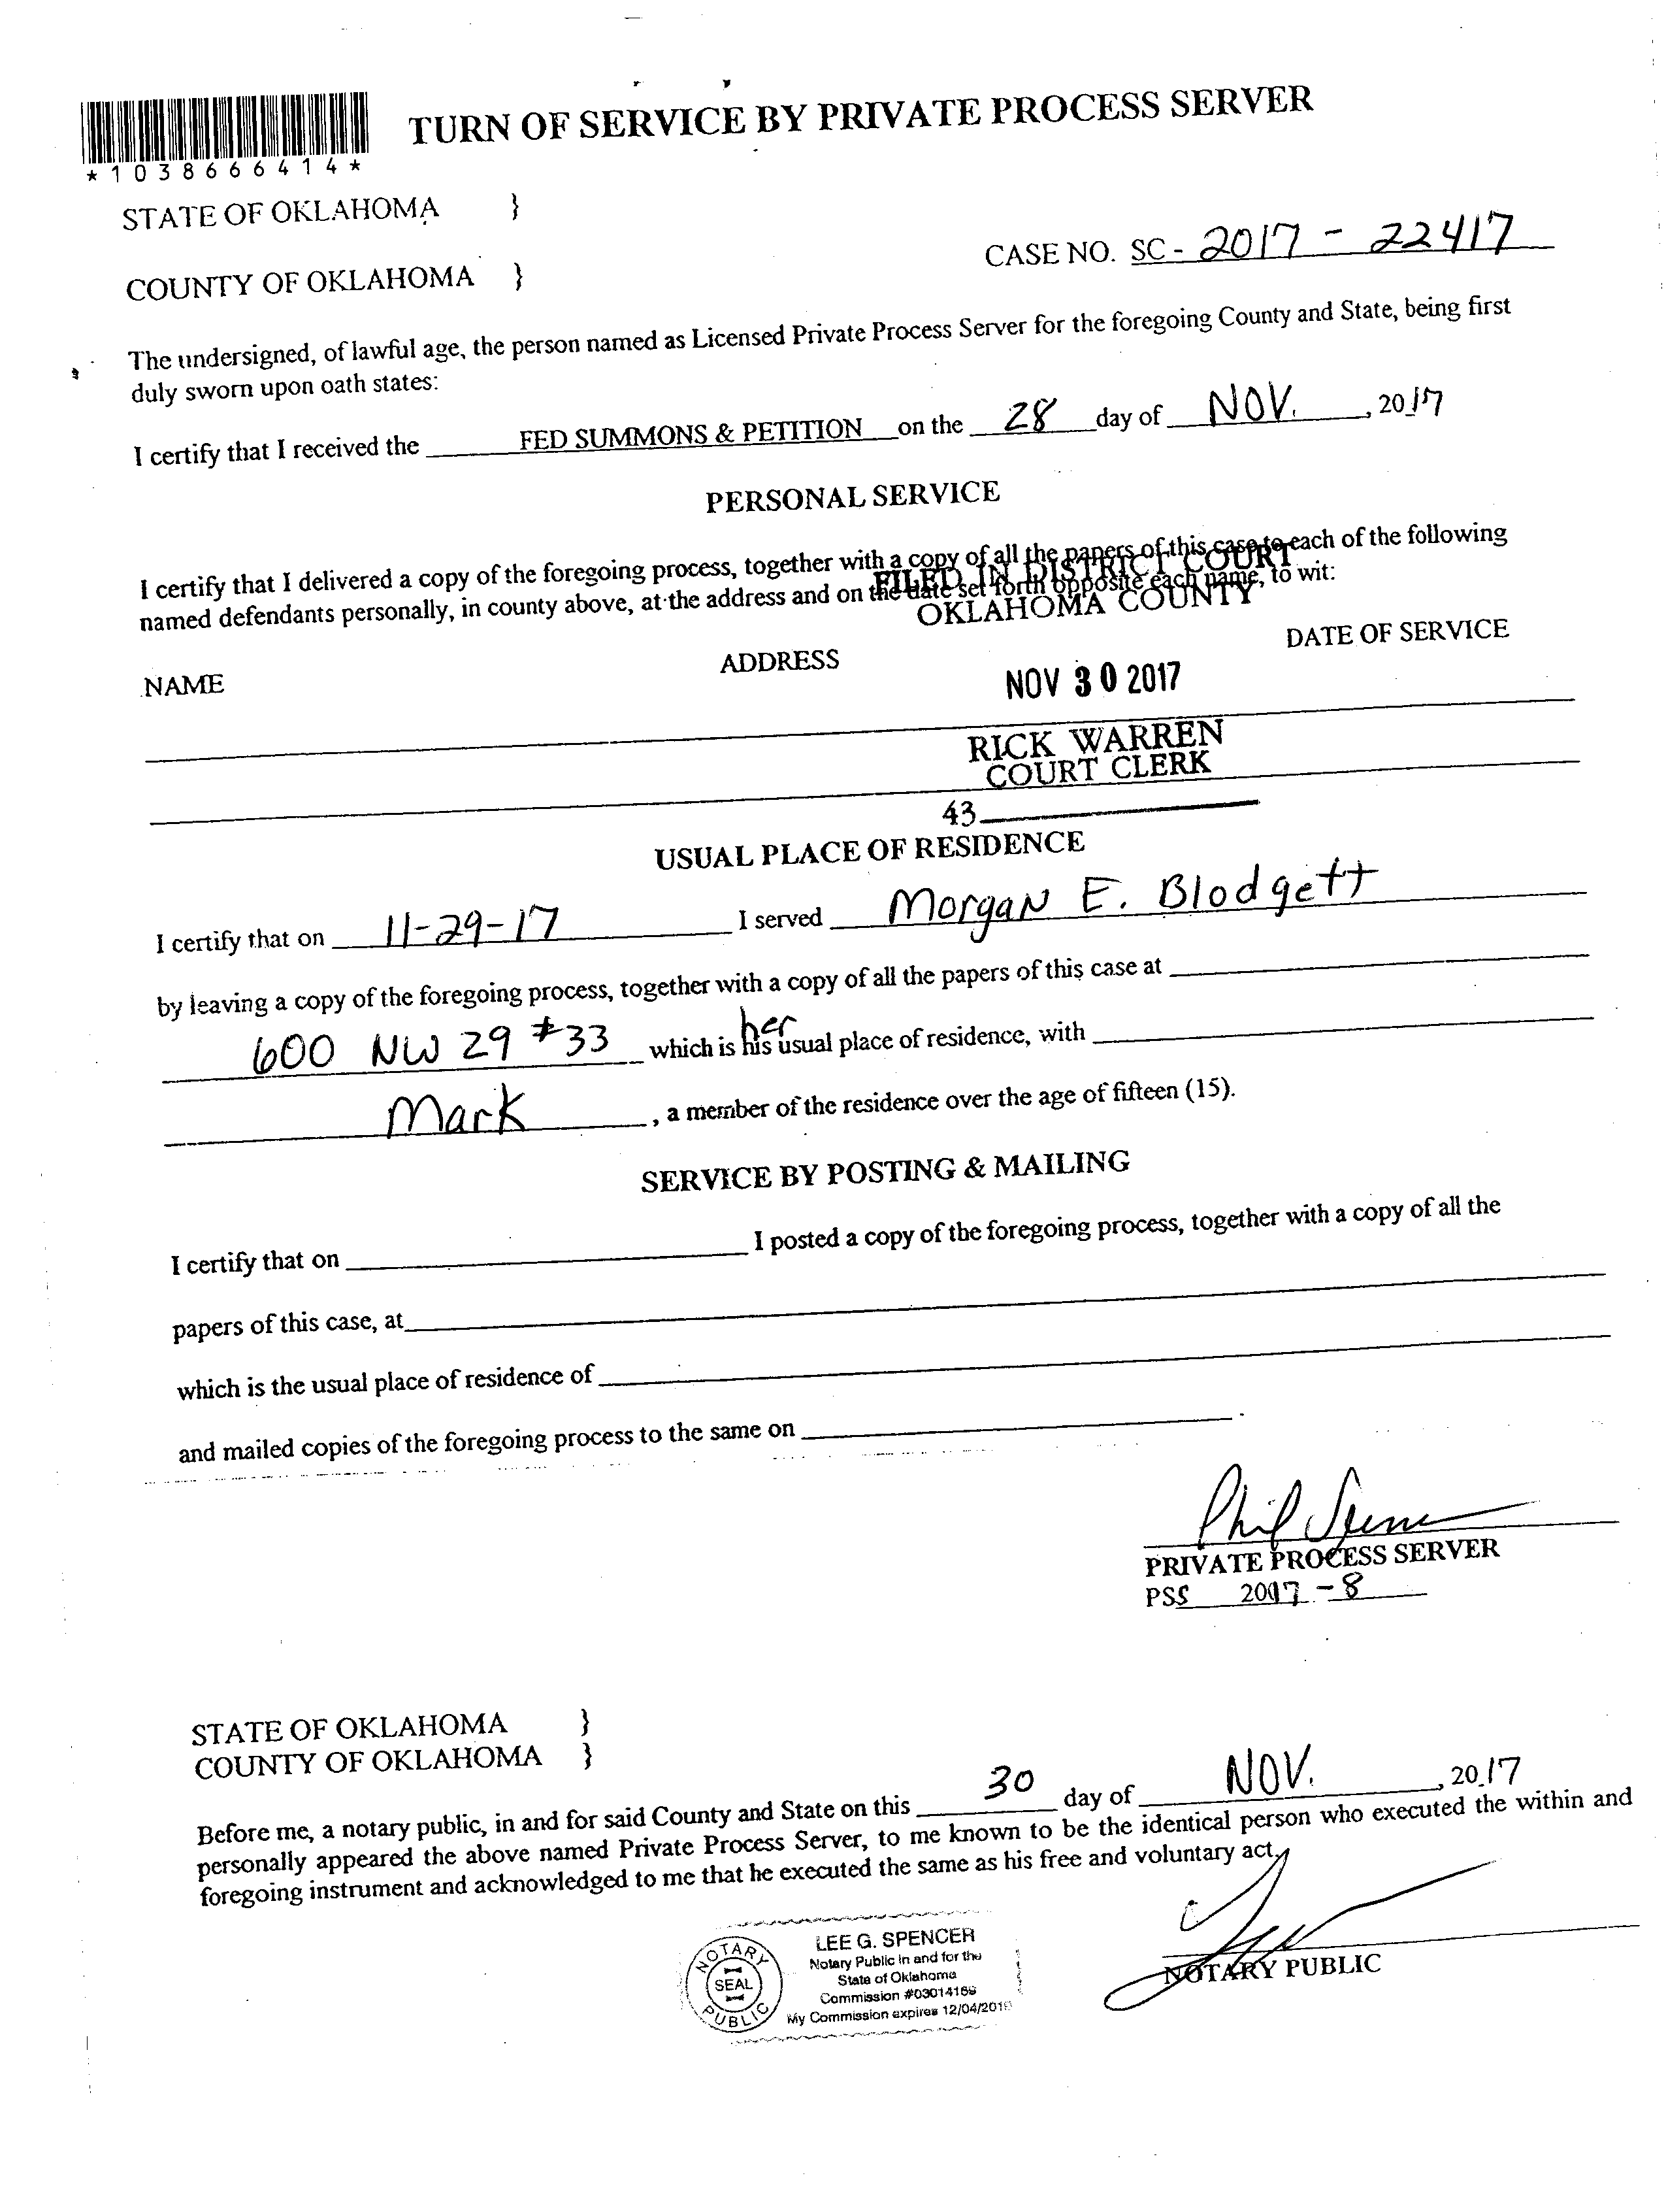 TURN OF SERVICE BY PRIVATE PROCESS SERVER
*1038666414*
STATE OF OKLAHOMA }
CASE NO. SC - 2017 - 22417
COUNTY OF OKLAHOMA }
The undersigned, of lawful age, the person named as Licensed Private Process Server for the foregoing County and State, being first
duly sworn upon oath states:
I certify that I received the FED SUMMONS & PETITION on the 28 day of NOV. , 2017
PERSONAL SERVICE
I certify that I delivered a copy of the foregoing process, together with a copy of all the papers of this case to each of the following
named defendants personally, in county above, at the address and on the date set forth opposite each name, to wit:
FILED IN DISTRICT COURT
OKLAHOMA COUNTY
NAME ADDRESS DATE OF SERVICE
NOV 30 2017
RICK WARREN
COURT CLERK
43
USUAL PLACE OF RESIDENCE
I certify that on 11-29-17 I served Morgan E. Blodgett
by leaving a copy of the foregoing process, together with a copy of all the papers of this case at
her
600 NW 29 #33 which is his usual place of residence, with
Mark , a member of the residence over the age of fifteen (15).
SERVICE BY POSTING & MAILING
I certify that on I posted a copy of the foregoing process, together with a copy of all the
papers of this case, at
which is the usual place of residence of
and mailed copies of the foregoing process to the same on .
Phil
PRIVATE PROCESS SERVER
PSS 2017 - 8
STATE OF OKLAHOMA }
COUNTY OF OKLAHOMA }
Before me, a notary public, in and for said County and State on this 30 day of NOV. , 2017
personally appeared the above named Private Process Server, to me known to be the identical person who executed the within and
foregoing instrument and acknowledged to me that he executed the same as his free and voluntary act.
NOTARY PUBLIC
SEAL
LEE G. SPENCER
Notary Public in and for the
State of Oklahoma
Commission
My Commission expires
NOTARY PUBLIC